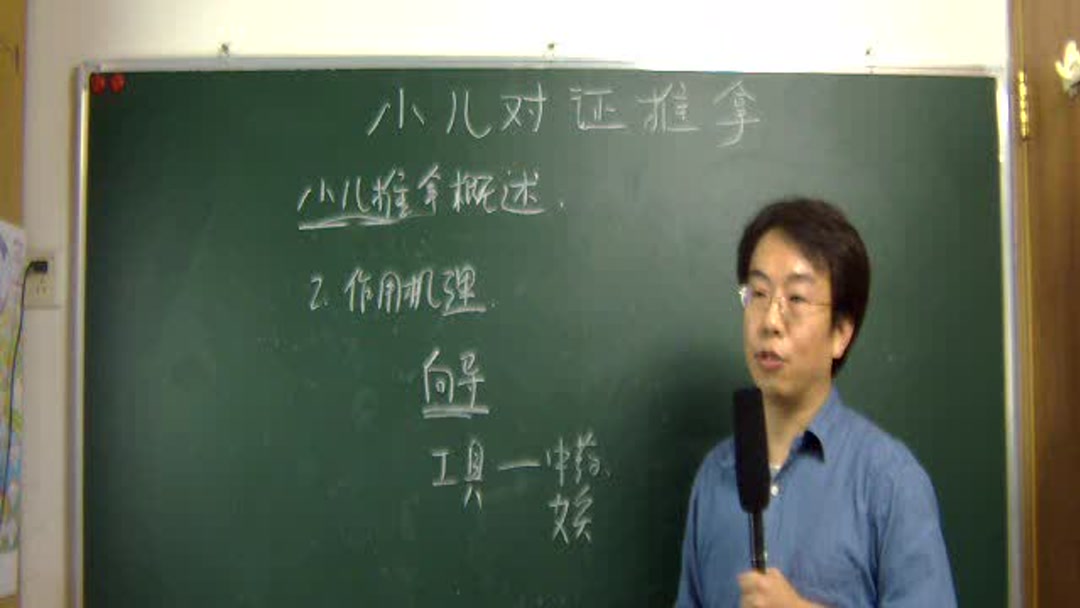 小儿对证推拿
小儿推拿概述.
2. 作用机理.
向导
工具—中药、